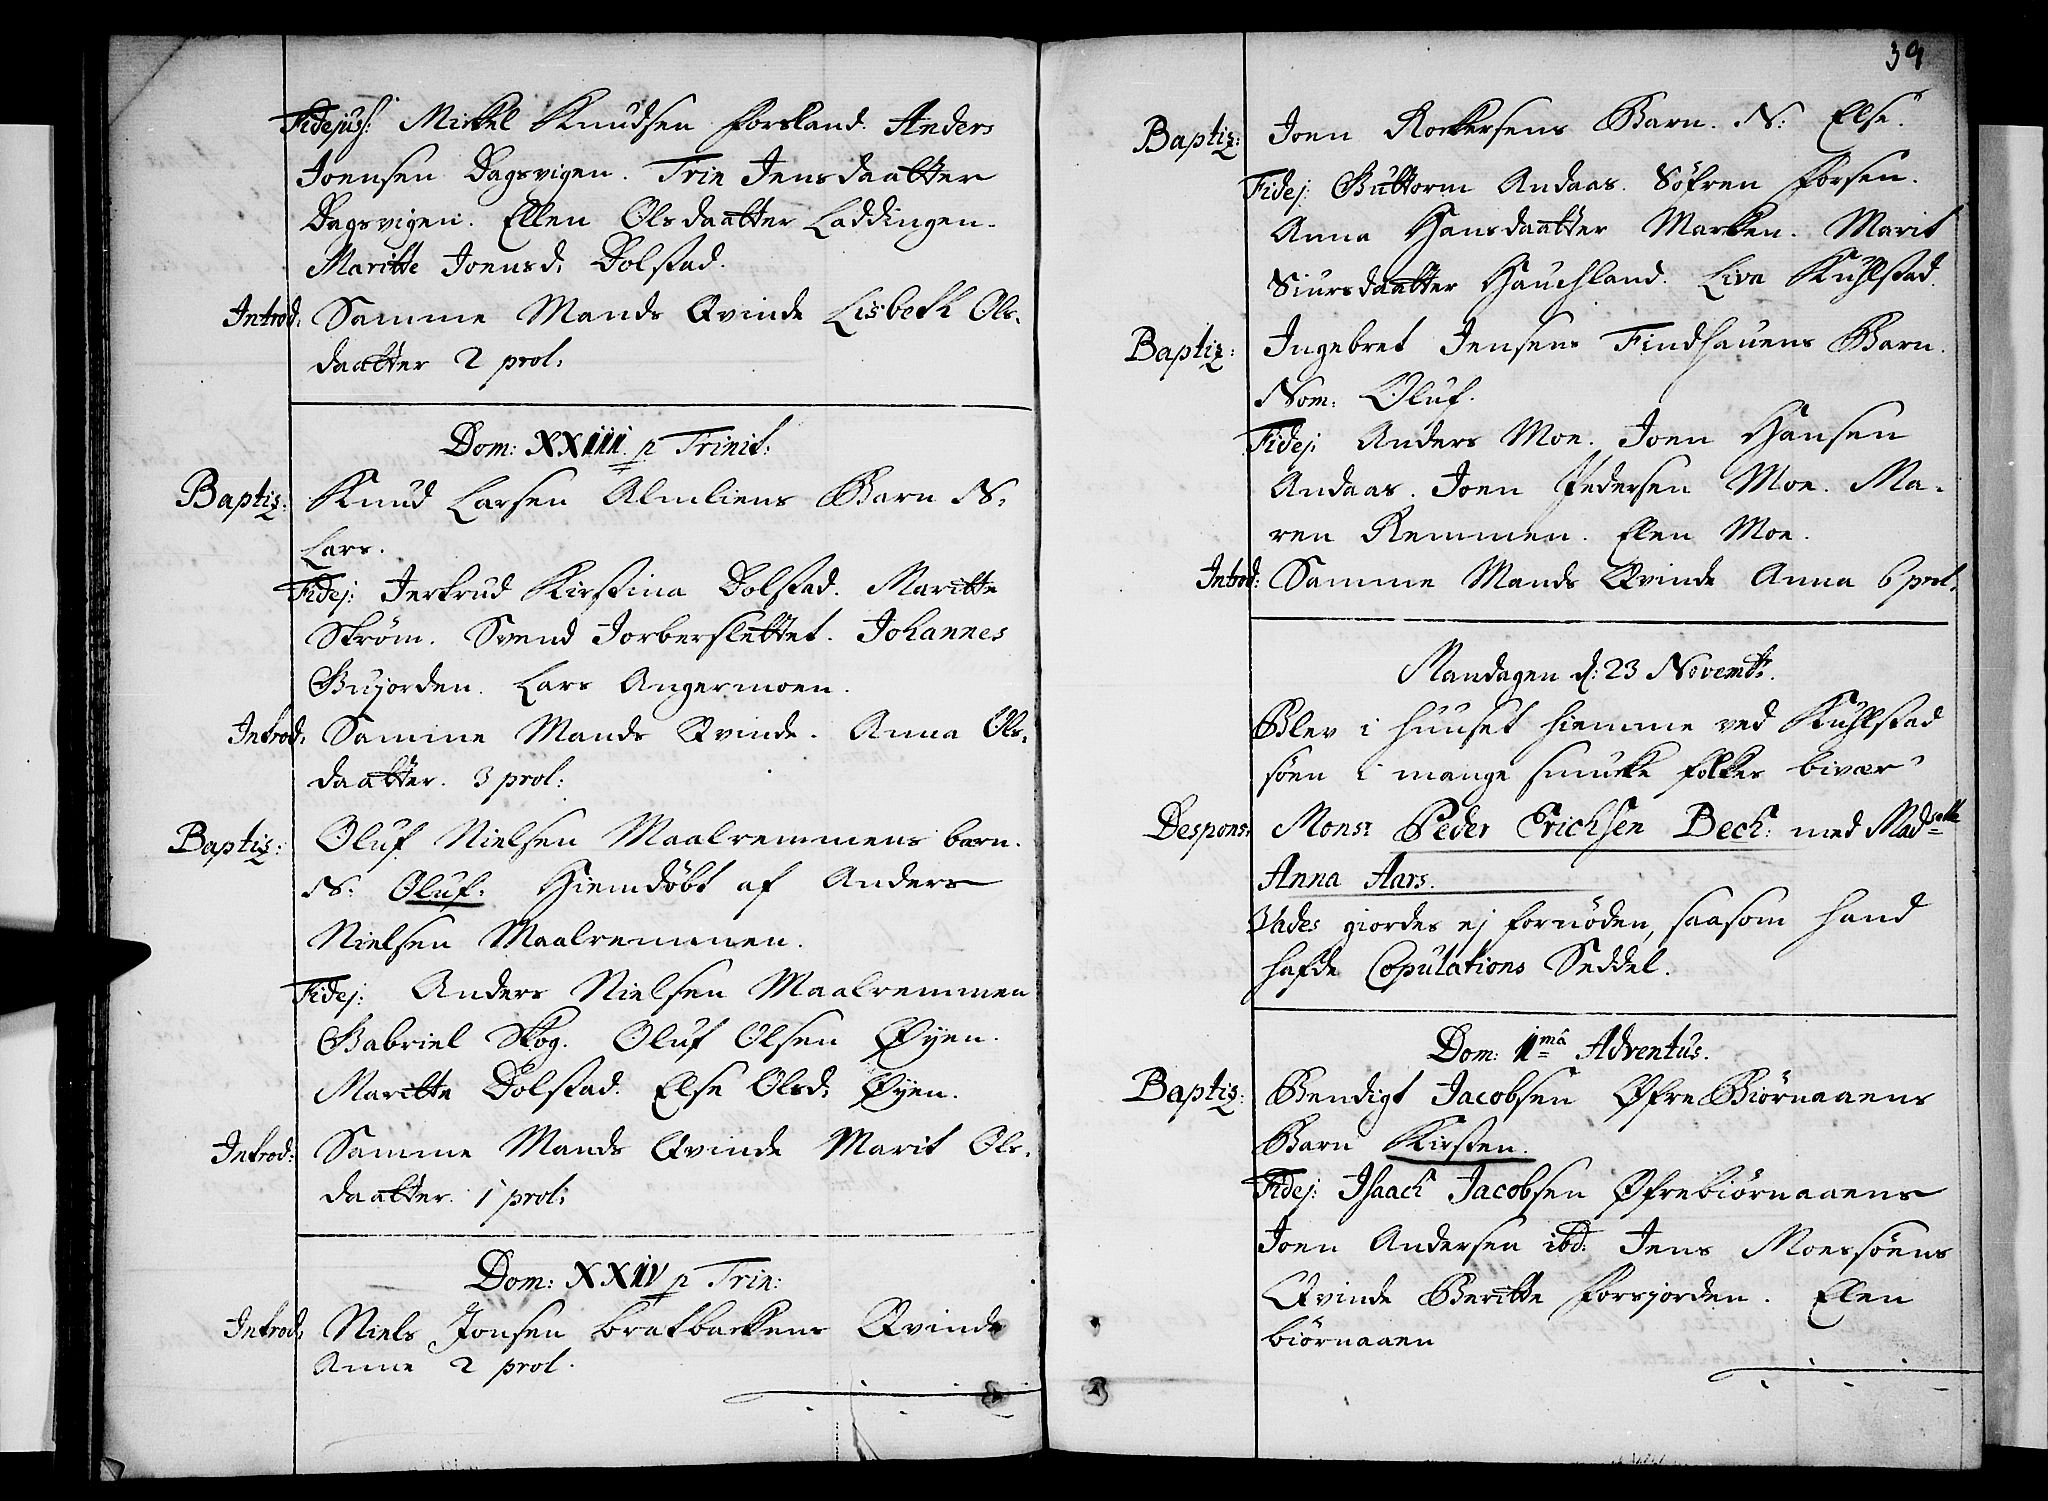 Fidejuss: Mickel Knudsen Forsland. Anders
Joensen Dagsvigen. Trin Jensdaatter
Dagsvigen. Ellen Olsdaatter Laddingen.
Maritte Joensd: Dolstad.
Introd: Samme Mands Qvinde Lisbeth Ols-
daatter 2 prol:
Dom: XXIII p Trinit:
Baptiz: Knud Larsen Almliens Barn N:
Lars.
Fidej: Jertrud Kirstina Dolstad. Maritte
Strøm. Svend Jorberslettet. Johannes
Bujorden. Lars Angermoen.
Introd: Samme Mands Qvinde. Anna Ols-
daatter. 3 prol:
Baptiz: Oluf Nielsen Maalremmens barn.
N: Oluf: Hiemdöbt af Anders
Nielsen Maalremmen.
Fidej: Anders Nielsen Maalremmen
Gabriel Skog. Oluf Olsen Øyen.
Maritte Dolstad. Else Olsd: Øyen.
Introd: Samme Mands Qvinde Marit Ols-
daatter. 1 prol:
Dom: XXIV p Trin:
Introd: Niels Jonsen Bratbackens Qvinde
Anne 2 prol.
39
Baptiz: Joen Rockersens Barn. N: Else.
Fidej: Guttorm Andaas. Söfren Forsen.
Anna Hansdaatter Marken. Marit
Siursdaatter Hauchland. Liva Kuhlstad.
Baptiz: Ingebret Jensens Findhauens Barn.
Nom: Oluf.
Fidej: Anders Moe. Joen Hansen
Andaas. Joen Pedersen Moe. Ma-
ren Remmen. Elen Moe.
Introd: Samme Mands Qvinde Anna 6 prol.
Mandagen d: 23 Novembr.
Blev i huuset hiemme ved Kuhlstad
söen i mange smucke folkes bivær
Despons: Monsr Peder Erichsen Bech: med Madselle
Anna Aars.
Vades giordes ej fornöden, saasom hand
hafde Copulations Seddel.
Dom: 1må Adventus.
Baptiz: Bendigt Jacobsen Øfre Biörnaaens
Barn Kirsten.
Fidej: Isaach Jacobsen Øfrebiörnaaens
Joen Andersen ibd: Jens Moessöens
Qvinde Beritte Forsjorden. Elen
biörnaaen